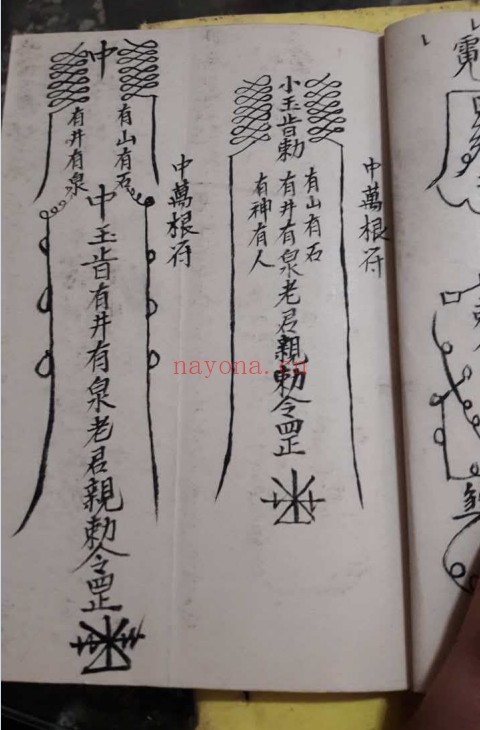 中萬根符
小玉旨勅
有山有石
有井有泉老君親勅令罡
有神有人
中萬根符
中
有山有石
有井有泉
中玉旨有井有泉老君親勅令罡